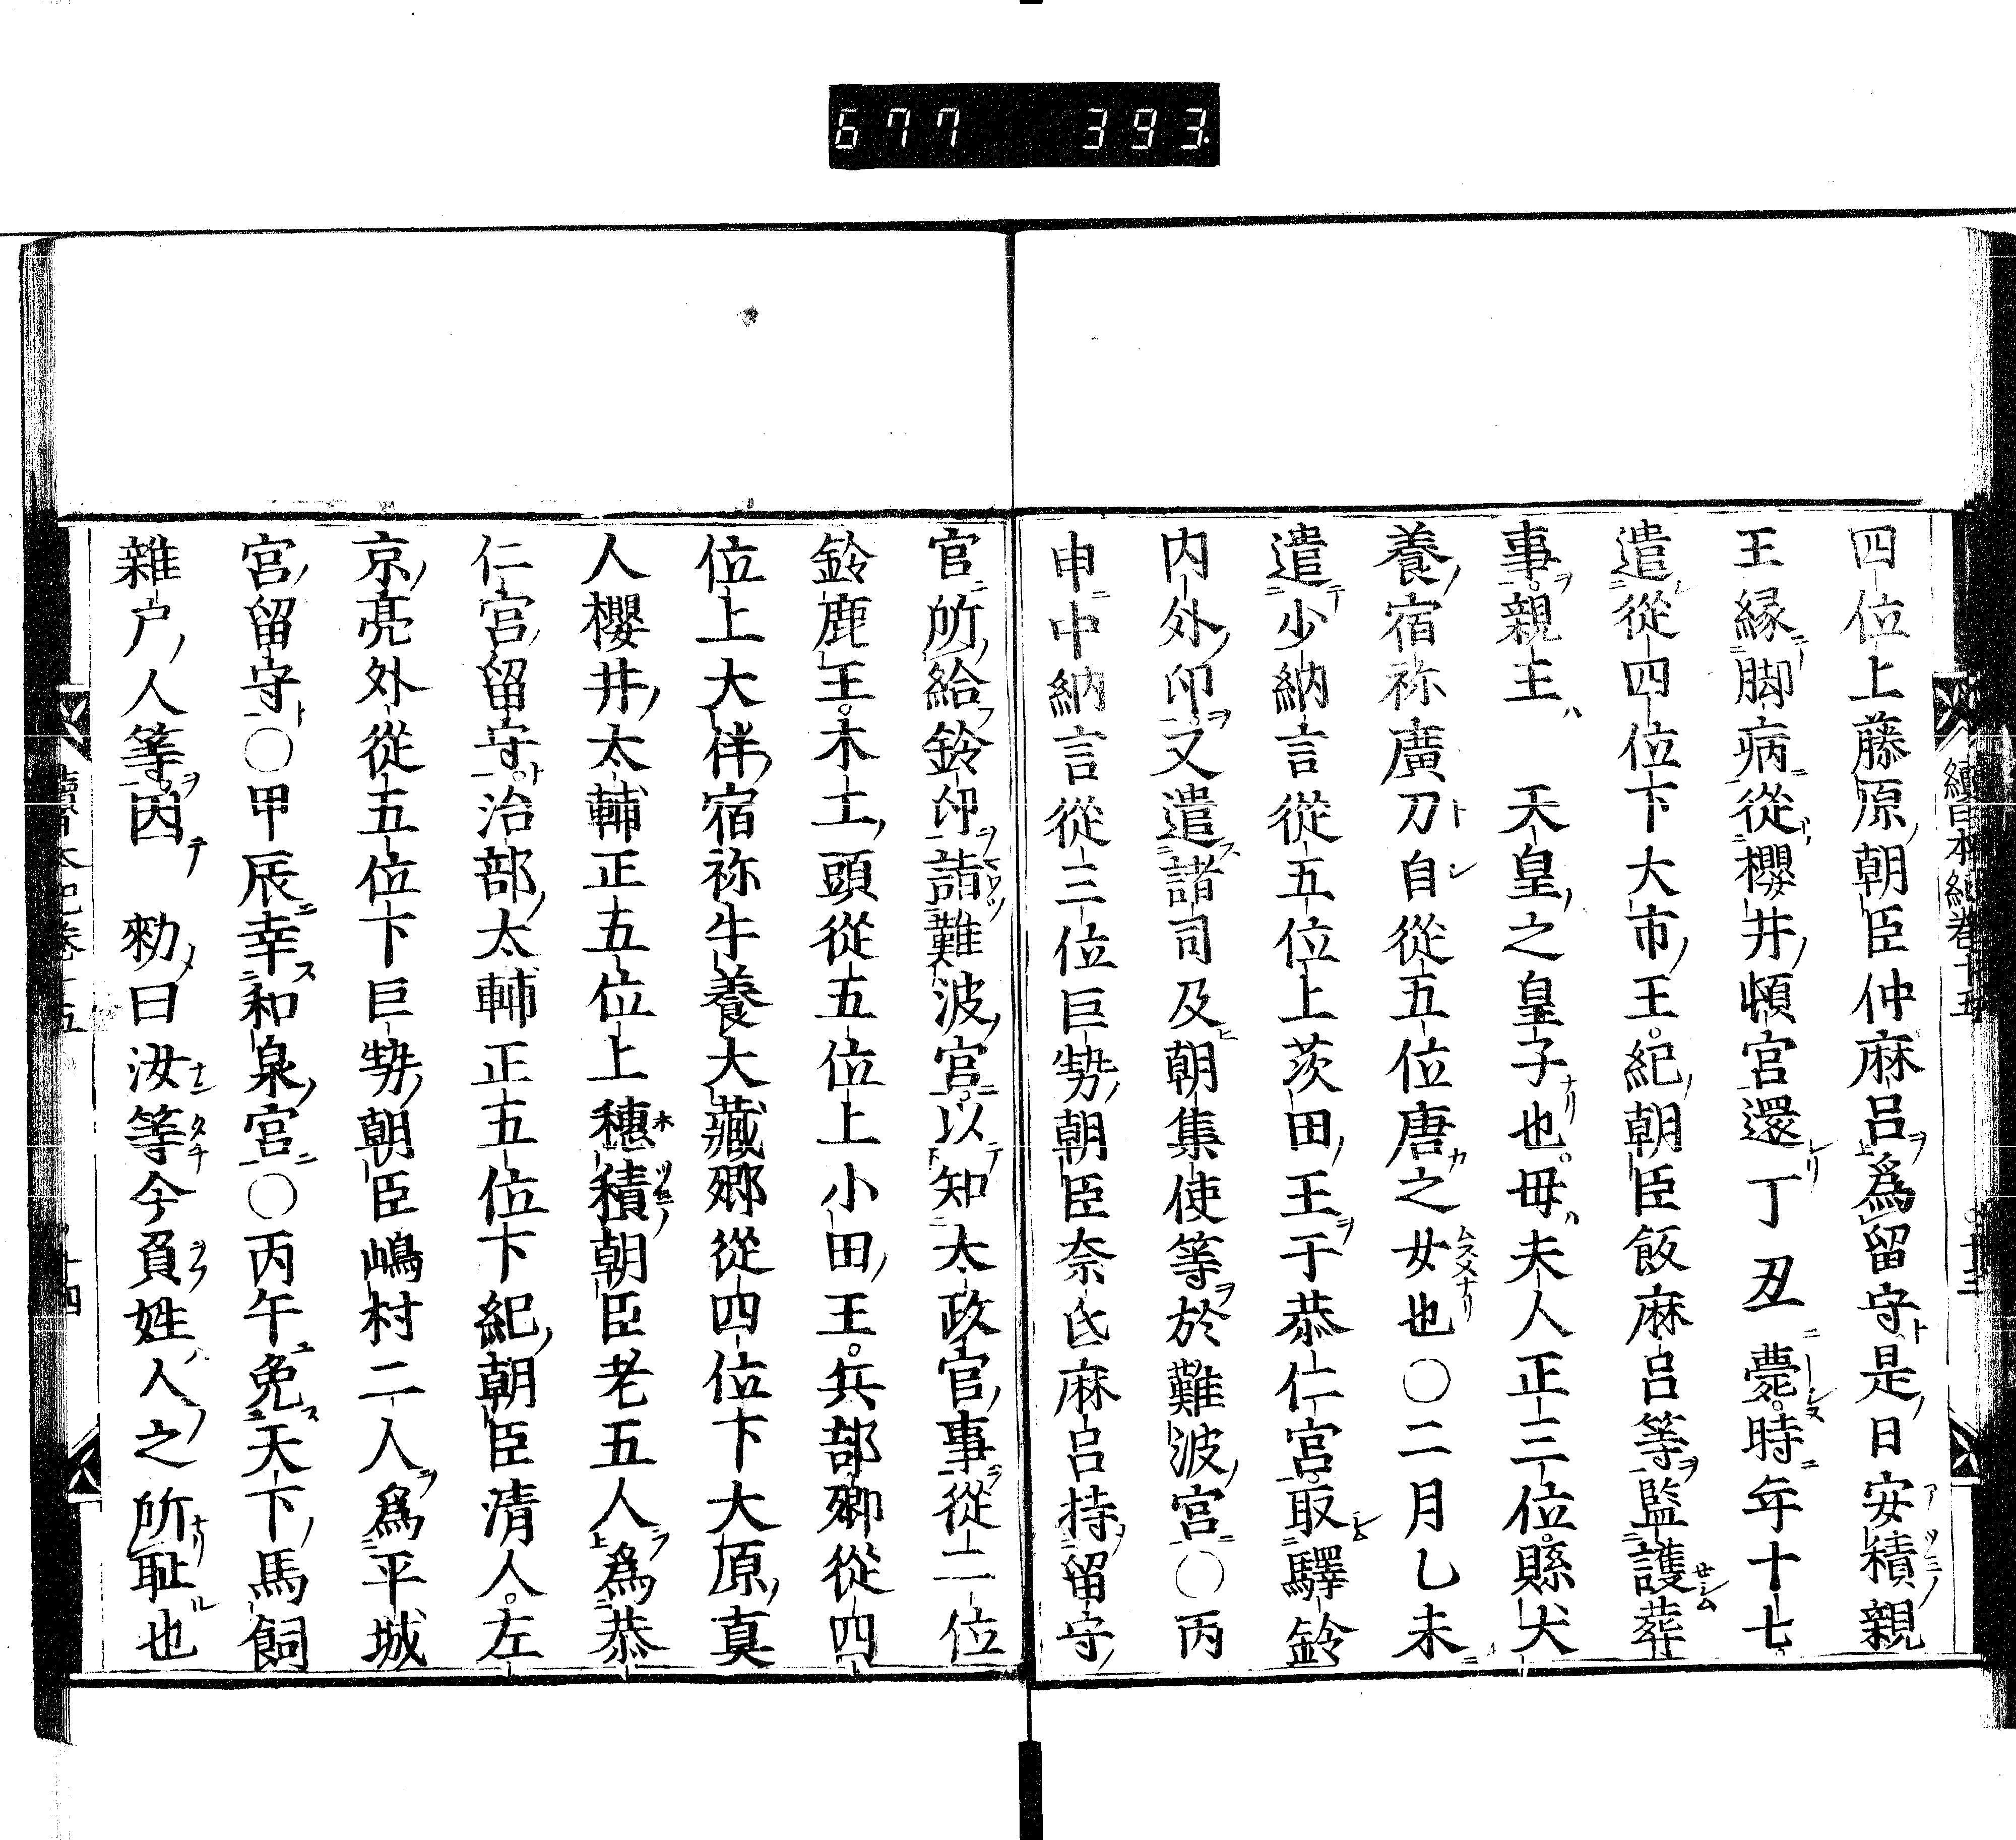 677 393.
續日本紀卷十五 十三
四位上藤原朝臣仲麻呂爲留守是日安積親
王縁脚病從櫻井頓宮還丁丑薨時年十七
遣從四位下大市王紀朝臣飯麻呂等監護葬
事親王 天皇之皇子也母夫人正三位縣犬
養宿祢廣刀自從五位唐之女也〇二月乙未
遣少納言從五位上茨田王于恭仁宮取驛鈴
内外印又遣諸司及朝集使等於難波宮〇丙
申中納言從三位巨勢朝臣奈氐麻呂持留守
官所給鈴印詣難波宮以知太政官事從二位
鈴鹿王木工頭從五位上小田王兵部卿從四
位上大伴宿祢牛養大藏卿從四位下大原真
人櫻井太輔正五位上穗積朝臣老五人爲恭
仁宮留守治部太輔正五位下紀朝臣清人左
京亮外從五位下巨勢朝臣嶋村二人爲平城
宮留守〇甲辰幸和泉宮〇丙午免天下馬飼
雜户人等因 勑曰汝等今負姓人之所耻也
續日本紀卷十五 十四